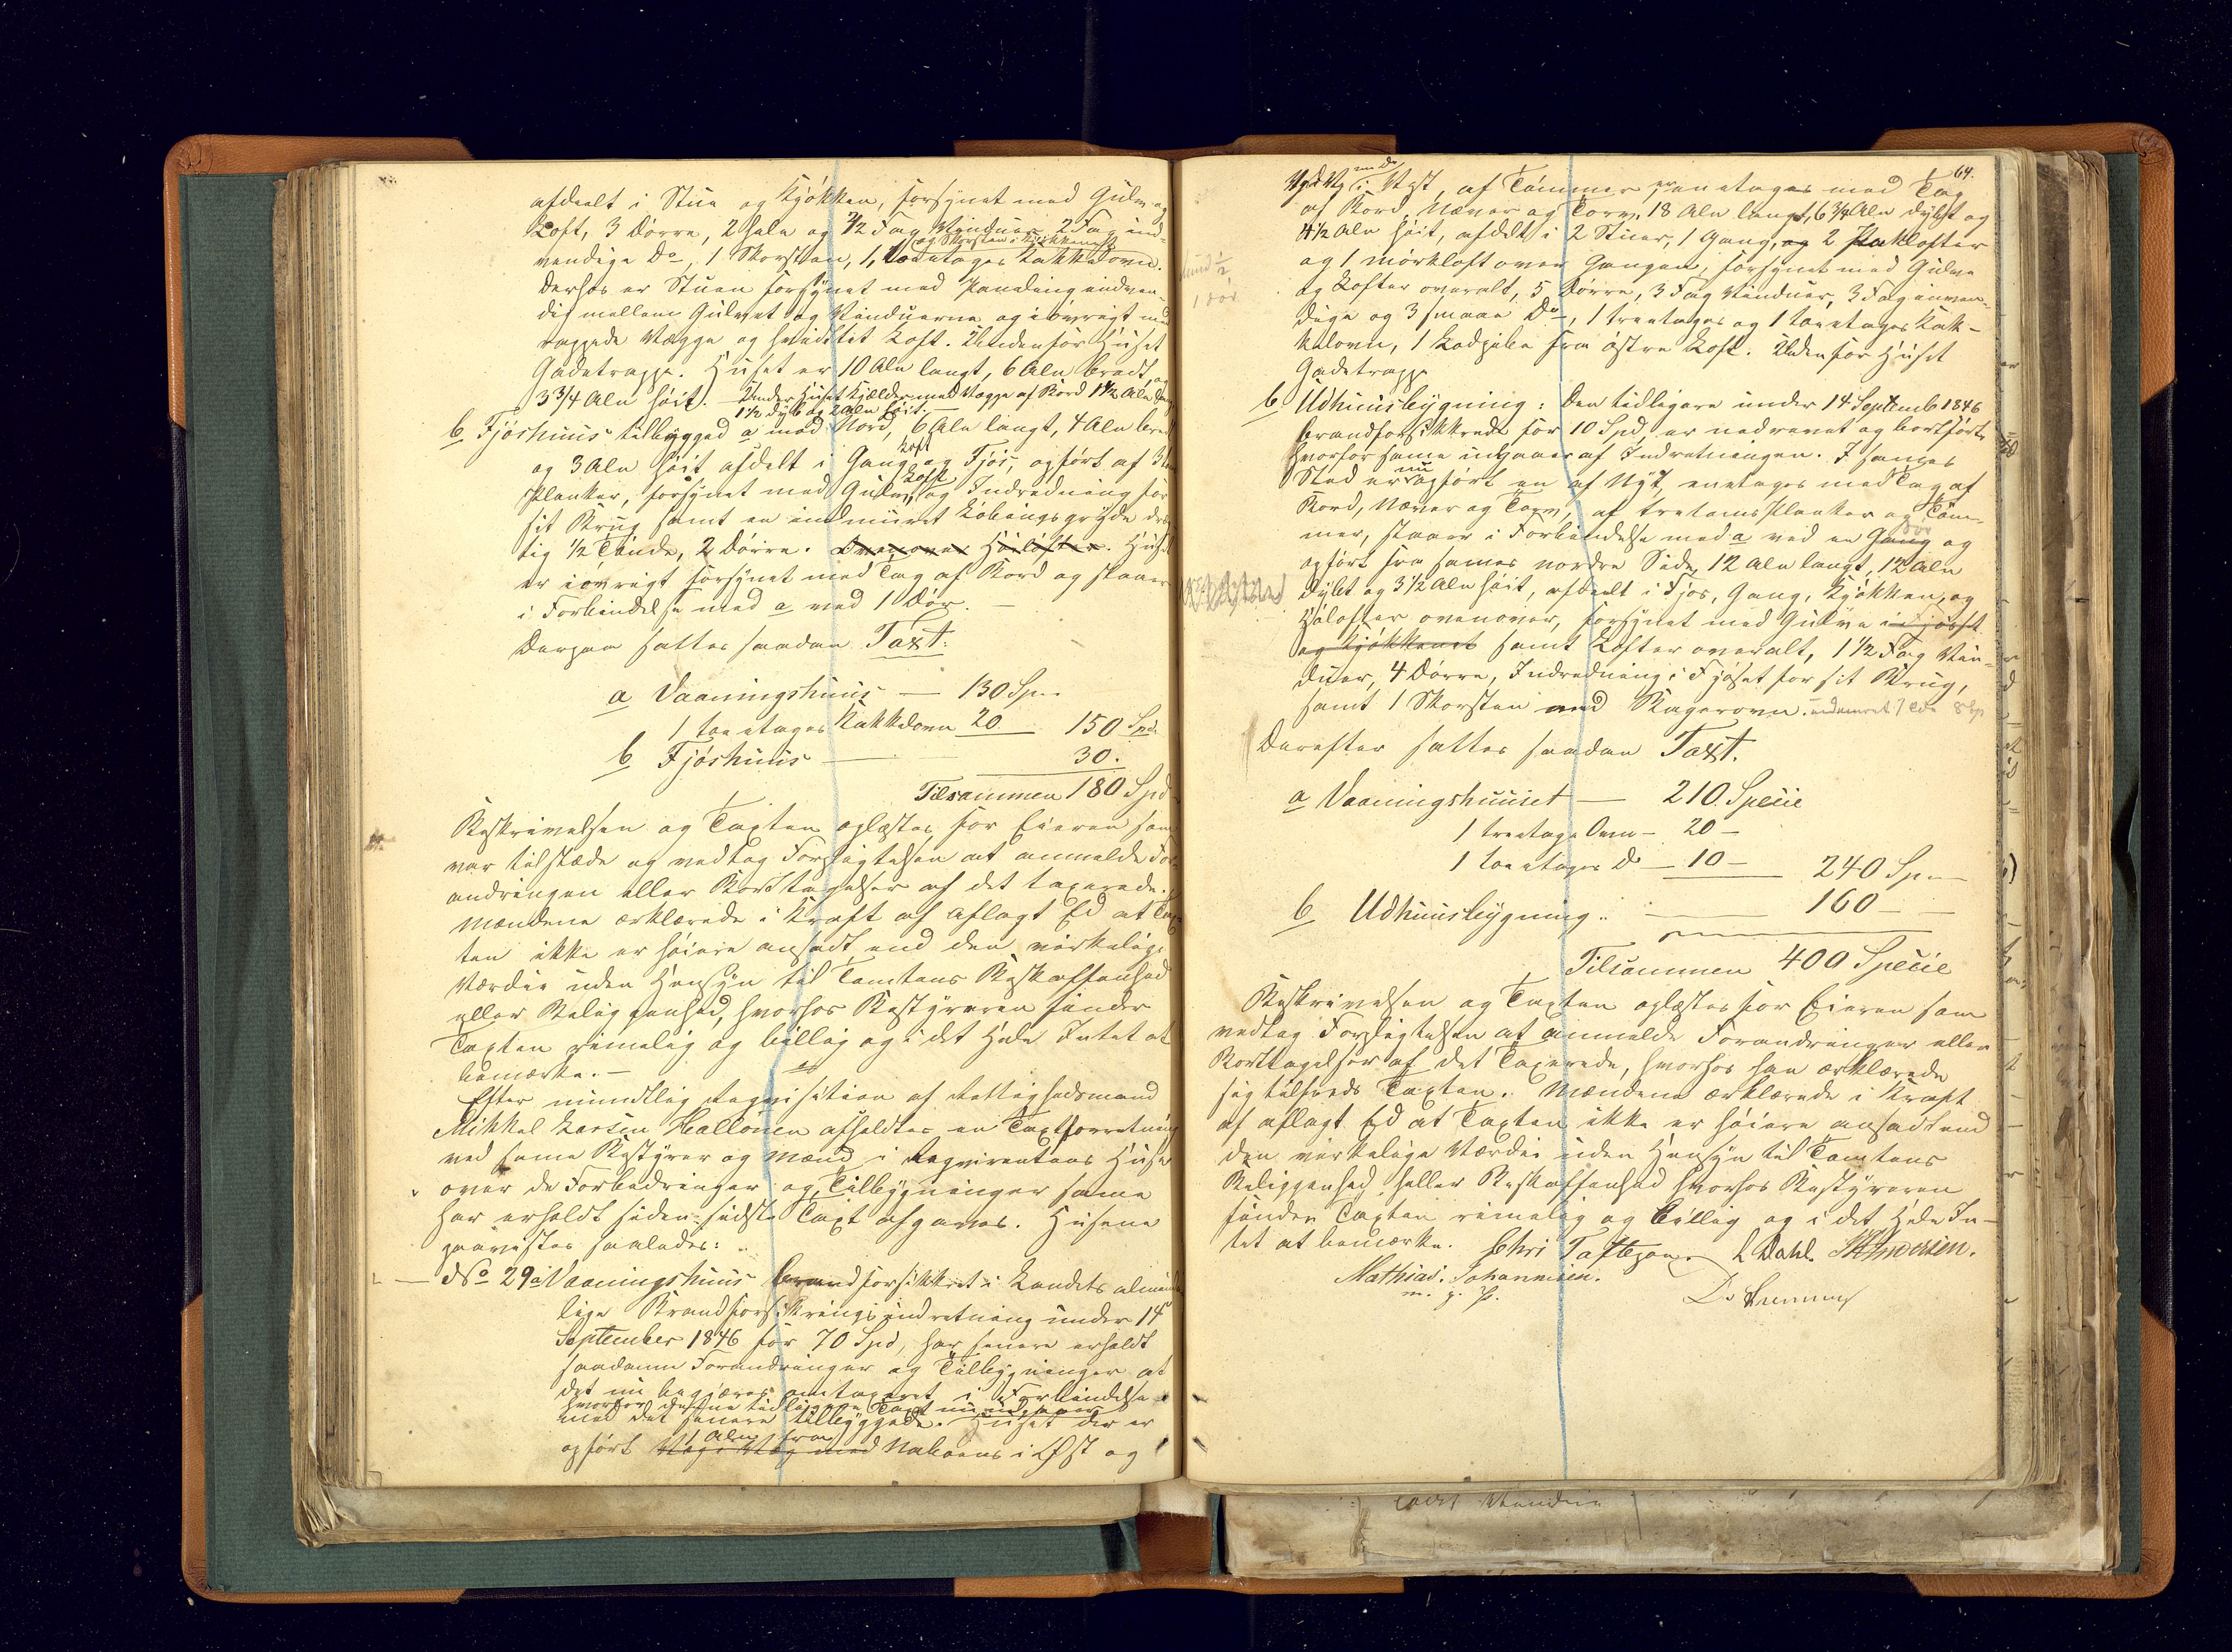 afdeelt i Stue og Kjøkken, forsynet med Gulv og
Loft, 3 Dørre, 2 hele og 2/2 Fag Vinduer 2 Fag ind-
og Skorsten i Kjøkkenet
vendige Do, 1 Skorsteen, 1 toeetages Kakkelovn.
Derhos er Stuen forsynet med Paneling indven-
dig mellem Gulvet og Vinduerne og iøvrigt med
rappede Vægge og hvidtet Loft. Udenfor Huset
Gadetrappe. Huset er 10 Alen langt, 6 Alen bredt, og
3 3/4 Alen høit. – Under Huset Kjælder med Vægge af Bord 1 1/2 Alen lang
1 1/2 dyb og 2 Alen høit. –
b Fjøshuus tilbygged a mod Nord, 6 Alen langt, 4 Alen bred
Loft
og 3 Alen høit afdelt i Gang og Fjøs, opført af 3
Loft
Planker, forsynet med Gulv, og Indredning for
sit Brug samt en indmuret Kobbergryde dræg-
tig 1/2 Tønde, 2 Dørre. Ovenover Høeloftet. Huset
er iøvrigt forsynet med Tag af Bord og staaer
i Forbindelse med a ved 1 Dør. –
Derpaa sattes saadan Taxt:
a Vaaningshuus — 130 Spd.
1 toeetages Kakkelovn 20. 150 Spd.
b Fjøshuus — 30.
Tilsammen 180 Spd
Beskrivelsen og Taxten oplæstes for Eieren som
var tilstæde og vedtog Forpligtelsen at anmelde For-
andringen eller Borttagelser af det taxerede.
Mændene erklærede i Kraft af aflagt Ed at Tax-
ten ikke er høiere ansadt end den virkelige
Værdie uden Hensyn til Tomtens Beskaffenhed
eller Beliggenhed, hvorhos Bestyreren finder
Taxten rimelig og billig og i det Hele Intet at
bemærke. –
Efter mundtlig Reqvisition af Rettighedsmand
Mikkel Larsen Hallonen afholdtes en Taxtforretning
ved samme Bestyrer og Mænd i Reqvirentens Huse
over de Forbedringer og Tilbygninger samme
har erholdt siden sidste Taxt afgaves. Husene
paavistes saaledes:
No 29 a Vaaningshuus brandforsikkret i Landets almin-
lige Brandforsikringsindretning under 14
September 1846 for 70 Spd, har senere erholdt
saadanne Forandringer og Tilbygninger at
det nu begjæres omtaxeret i Forbindelse
hvorfor denne tidligere Taxt nu udgaaer
med det senere tilbyggede. Huset der er
1 Alen fra
opført Væg i Væg med Naboens i Øst og
64.
med Do
Væg i Væg i Vest, af Tømmer, er enetages med Tag
af Bord, Næver og Torv, 18 Alen langt, 6 3/4 Alen dybt og
4 1/2 Alen høit, afdelt i 2 Stuer, 1 Gang, og 2 Stakloften
og 1 mørkloft over Gangen, forsynet med Gulve
og Lofter overalt, 5 Dørre, 3 Fag Vinduer, 3 Fag indven-
dige og 3 smaae Do, 1 treetages og 1 toeetages Kak-
kelovn, 1 Lodpibe fra østre Loft. Udenfor Huset
Gadetrappe
1 dør
b Udhuusbygning: Den tidligere under 14 Septemb 1846
brandforsikkrede for 10 Spd, er nedrevet og bortført,
hvorfor samme udgaaer af Indretningen. I sammes
nu
Sted er opført en af Nyt, enetages med Tag af
Bord, Næver og Torv, af tretoms Planker og Tøm-
dør
mer, staaer i Forbindelse med a ved en Gang og
opført fra sammes nordre Side, 12 Alen langt, 12 Alen
dybt og 3 1/2 Alen høit, afdeelt i Fjøs, Gang, Kjøkken, og
Høloftet ovenover, forsynet med Gulve i Fjøset
og Kjøkkenet samt Lofter overalt, 1 1/2 Fag Vin-
duer, 4 Dørre, Indredning i Fjøset for sit Brug,
samt 1 Skorsten med Bagerovn.
Derefter sattes saadan Taxt.
a Vaaningshuuset — 210 Specie
1 treetags Ovn – 20 –
1 toeetages Do – 10 – 240 Spd –
b Udhuusbygning — 160 –
Tilsammen 400 Specie
Beskrivelsen og Taxten oplæstes for Eieren som
vedtog Forpligtelsen at anmelde Forandringer eller
Borttagelser af det Taxerede, hvorhos han erklærede
sig tilfreds Taxten. Mændene erklærede i Kraft
af aflagt Ed at Taxten ikke er høiere ansadt end
den virkelige Værdie uden Hensyn til Tomtens
Beliggenhed heller Beskaffenhed hvorhos Bestyreren
finder Taxten rimelig og billig og i det Hele In-
tet at bemærke. Chri L Dahl
Mathias Johannisen.
m. p. P.